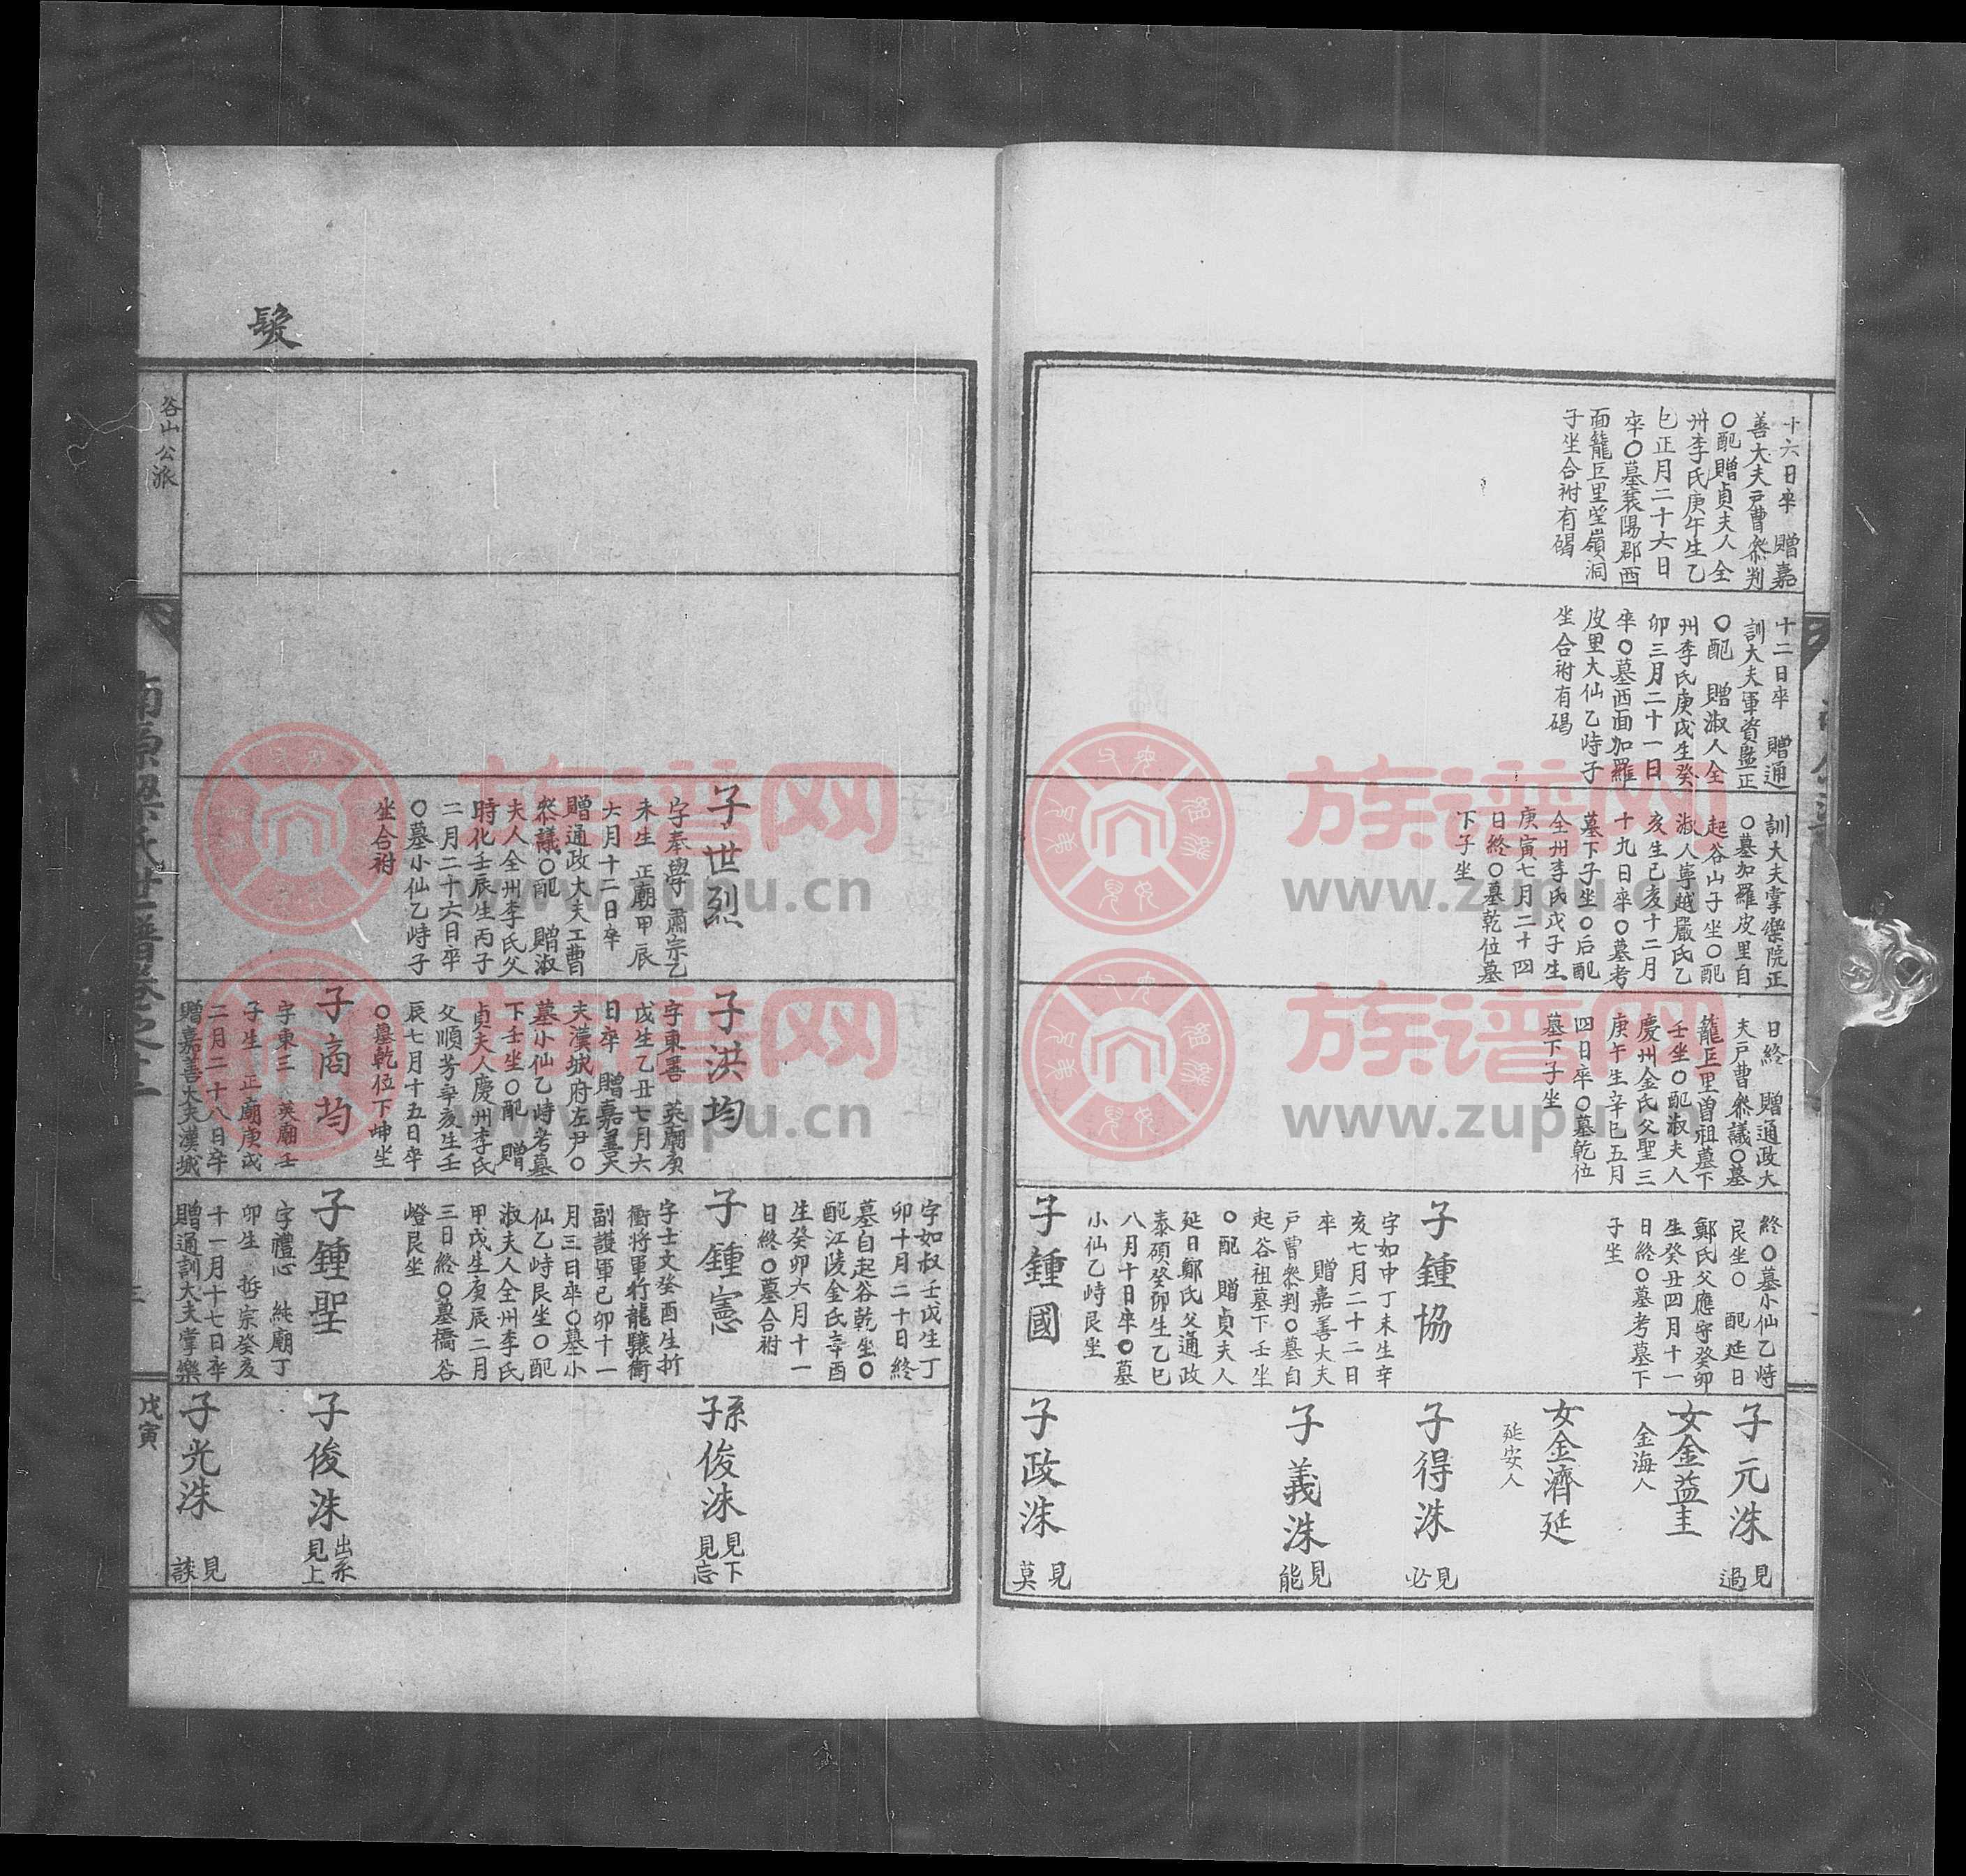 十六日卒　贈嘉
善大夫戸曹叅判
○配贈貞夫人全
州李氏庚午生乙
巳正月二十六日
卒○墓襄陽郡西
面龍巨里望嶺洞
子坐合祔有碣
十二日卒　贈通
訓大夫軍資監正
○配　贈淑人全
州李氏庚戌生癸
卯三月二十一日
卒○墓西面加羅
皮里大仙乙峙子
坐合祔有碣
訓大夫掌樂院正
○墓加羅皮里自
起谷山子坐○配
淑人寧越嚴氏乙
亥生己亥十二月
十九日卒○墓考
墓下子坐○后配
全州李氏戊子生
庚寅七月二十四
日終○墓乾位墓
下子坐
日終　贈通政大
夫戸曹叅議○墓
龍巨里曽祖墓下
壬坐○配淑夫人
慶州金氏父聖三
庚午生辛巳五月
四日卒○墓乾位
墓下子坐
終○墓小仙乙峙
艮坐○配延日
鄭氏父應守癸卯
生癸丑四月十一
日終○墓考墓下
子坐
子鍾協
字如中丁未生辛
亥七月二十二日
卒　贈嘉善大夫
戸曹叅判○墓自
起谷祖墓下壬坐
○配　贈貞夫人
延日鄭氏父通政
泰碩癸卯生乙巳
八月十日卒○墓
小仙乙峙艮坐
子鍾國
子元洙　見過
女金益圭
金海人
女金濟延
延安人
子得洙　見必
子義洙　見能
子政洙　見莫
髮
子世烈
字奉學　肅宗乙
未生　正廟甲辰
六月十二日卒
贈通政大夫工曹
叅議○配　贈淑
夫人全州李氏父
時化壬辰生丙子
二月二十六日卒
○墓小仙乙峙子
坐合祔
子洪均
字東善　英廟庚
戊生乙丑七月六
日卒　贈嘉善大
夫漢城府左尹○
墓小仙乙峙考墓
下壬坐○配　贈
貞夫人慶州李氏
父順芳辛亥生壬
辰七月十五日卒
○墓乾位下坤坐
子商均
字東三　英廟壬
子生　正廟庚戌
二月二十八日卒
贈嘉善大夫漢城
字如叔壬戊生丁
卯十月二十日終
墓自起谷乾坐○
配江陵金氏辛酉
生癸卯六月十一
日終○墓合祔
子鍾憲
字士文癸酉生折
衝將軍行龍驤衛
副護軍己卯十一
月三日卒○墓小
仙乙峙艮坐○配
淑夫人全州李氏
甲戊生庚辰二月
三日終○墓橋谷
嶝艮坐
子鍾聖
字禮心　純廟丁
卯生　哲宗癸亥
十一月十七日卒
贈通訓大夫掌樂
系子孫俊洙　見下見忘
子俊洙　出系見上
子光洙　見談
谷山公派
南原梁氏世譜卷之十二
三
戊寅
族谱网
www.zupu.cn
族谱网
www.zupu.cn
族谱网
www.zupu.cn
族谱网
www.zupu.cn